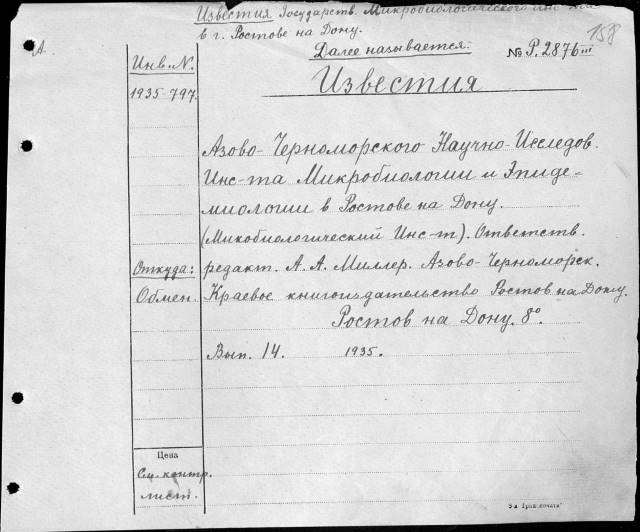 Известия Государств. Микробиологического Инс-та
в г. Ростове на Дону.
158
А.
Далее называется:
№ Р. 2876 III
Инв. N.
Известия
1935-797.
Азово-Черноморского Научно-Исследов.
Инс-та Микробиологии и Эпиде-
миологии в Ростове на Дону.
(Микобиологический Инс-т). Ответств.
Откуда:
редакт. А. А. Миллер. Азово-Черноморск.
Обмен.
Краевое книгоиздательство Ростов на Дону.
Ростов на Дону. 8°.
Вып. 14. 1935.
Цена
См. контр.
лист.